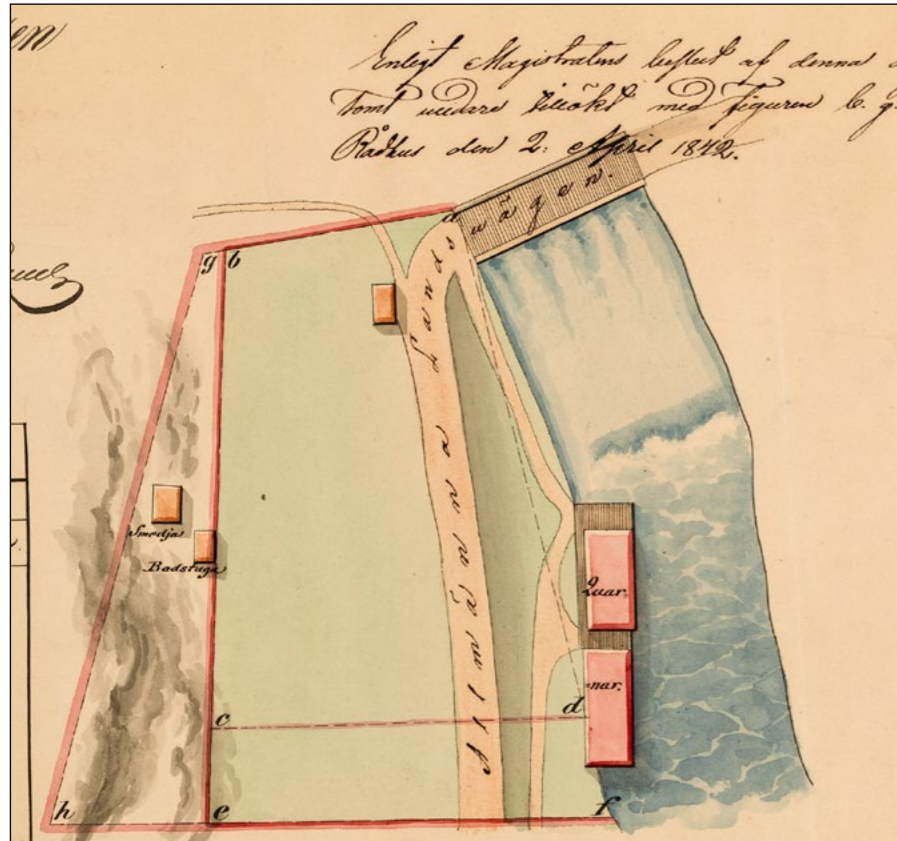 Enligt Magistratens beslut af denna
tomt vidare tillökt med figuren b. g.
Rådhus den 2: April 1842.
a
g b
Allmänna Landsvägen.
Smedja
Badstuga
Quar-
-nar.
c d
h e f